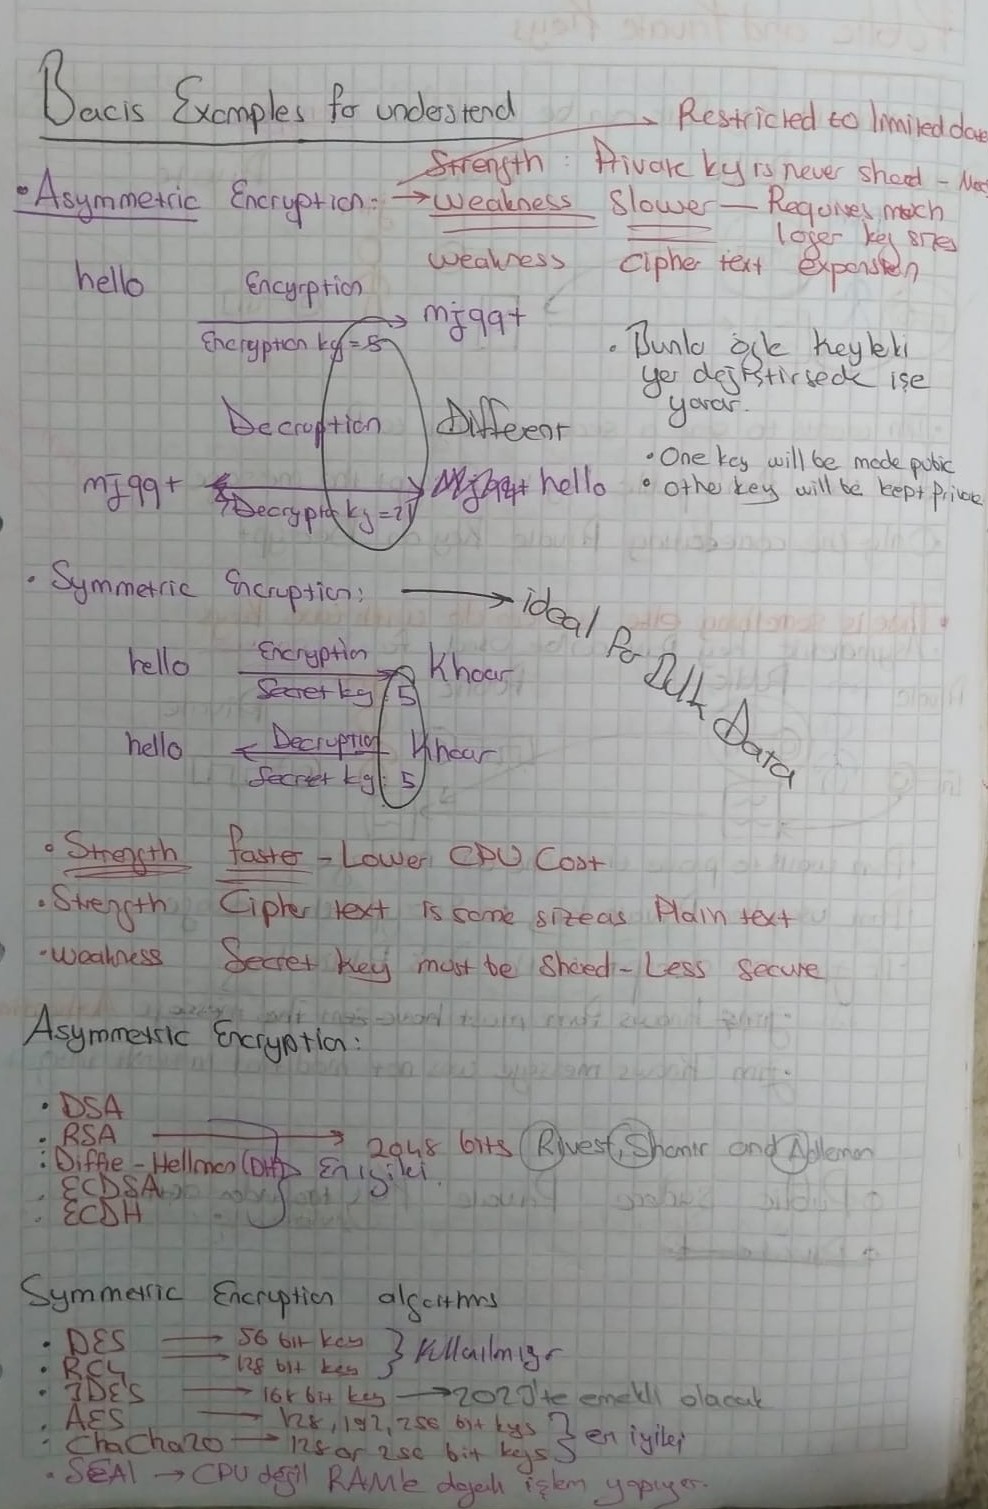 Bacis Examples for understend
Restricted to limited data
Strength : Private ky is never shaed -
• Asymmetric Encryption: → weakness Slower — Requires much
loger key sizes
weakness Cipher text expension
hello Encyrption mjqq+
Encryption ky = 5
• Bunla öyle keyleki
yer değiştirsede işe
yarar.
Decruption Differenr
• One key will be made pubic
mjqq+ hello • Othe key will be kept Private
Decrypto ky = 21
• Symmetric Encruption: → ideal for Bulk Data
hello Encryption Khoar
Secret ky : 5
hello Decruption Khoar
Secret ky : 5
• Strength faster - Lower CPU Cost
• Strength Cipher text is same size as Plain text
• weakness Secret key must be Shaed - Less secure
Asymmetric Encryption:
• DSA
• RSA → 2048 bits Rivest, Shamir and Adleman
• Diffie - Hellman (DH) En iyilei
• ECDSA
• ECDH
Symmetric Encruption algorithms
• DES → 56 bit key
• RC4 → 128 bit key
• 3DES → 168 bit key → 2023'te emekli olacak
• AES → 128, 192, 256 bit kys
• ChaCha20 → 128 or 256 bit keys } en iyilei
• SEAl → CPU değil RAMle dayalı işlem yapıyor.